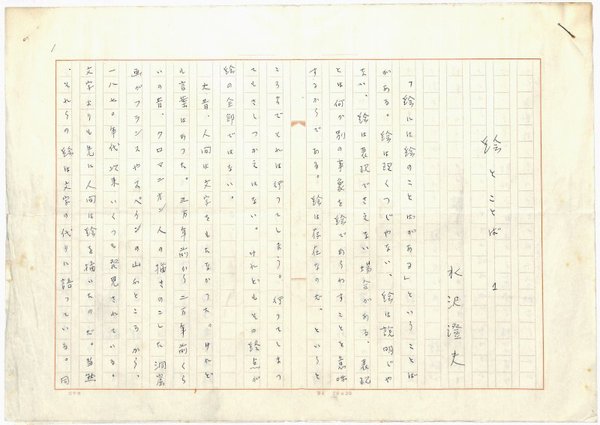 絵とことば 1
水沢澄夫
「絵には絵のことばがある」ということば
がある。絵は説くつじゃない、絵は説明じゃ
ない、絵は表現でさえない場合がある。表現
とは何か別の事象を絵であらわすことを意味
するからである。絵は存在なのだ。というと
ころまでとれば行ってしまう。行ってしまっ
てもさしつかえはない。けれどもその終点が
絵の全部ではない。
大昔、人間は文字をもたなかった。けれど
も言葉はあった。三万年前から二万年前くら
いの昔、クロマニオン人の描きのこした洞窟
画がフランスやスペインの山ぶところから、
一八七〇年代以来いくつも発見されている。
文字よりも先に人間は絵を描いたのだ。当然
、それらの絵は文字の代りに語っている。同